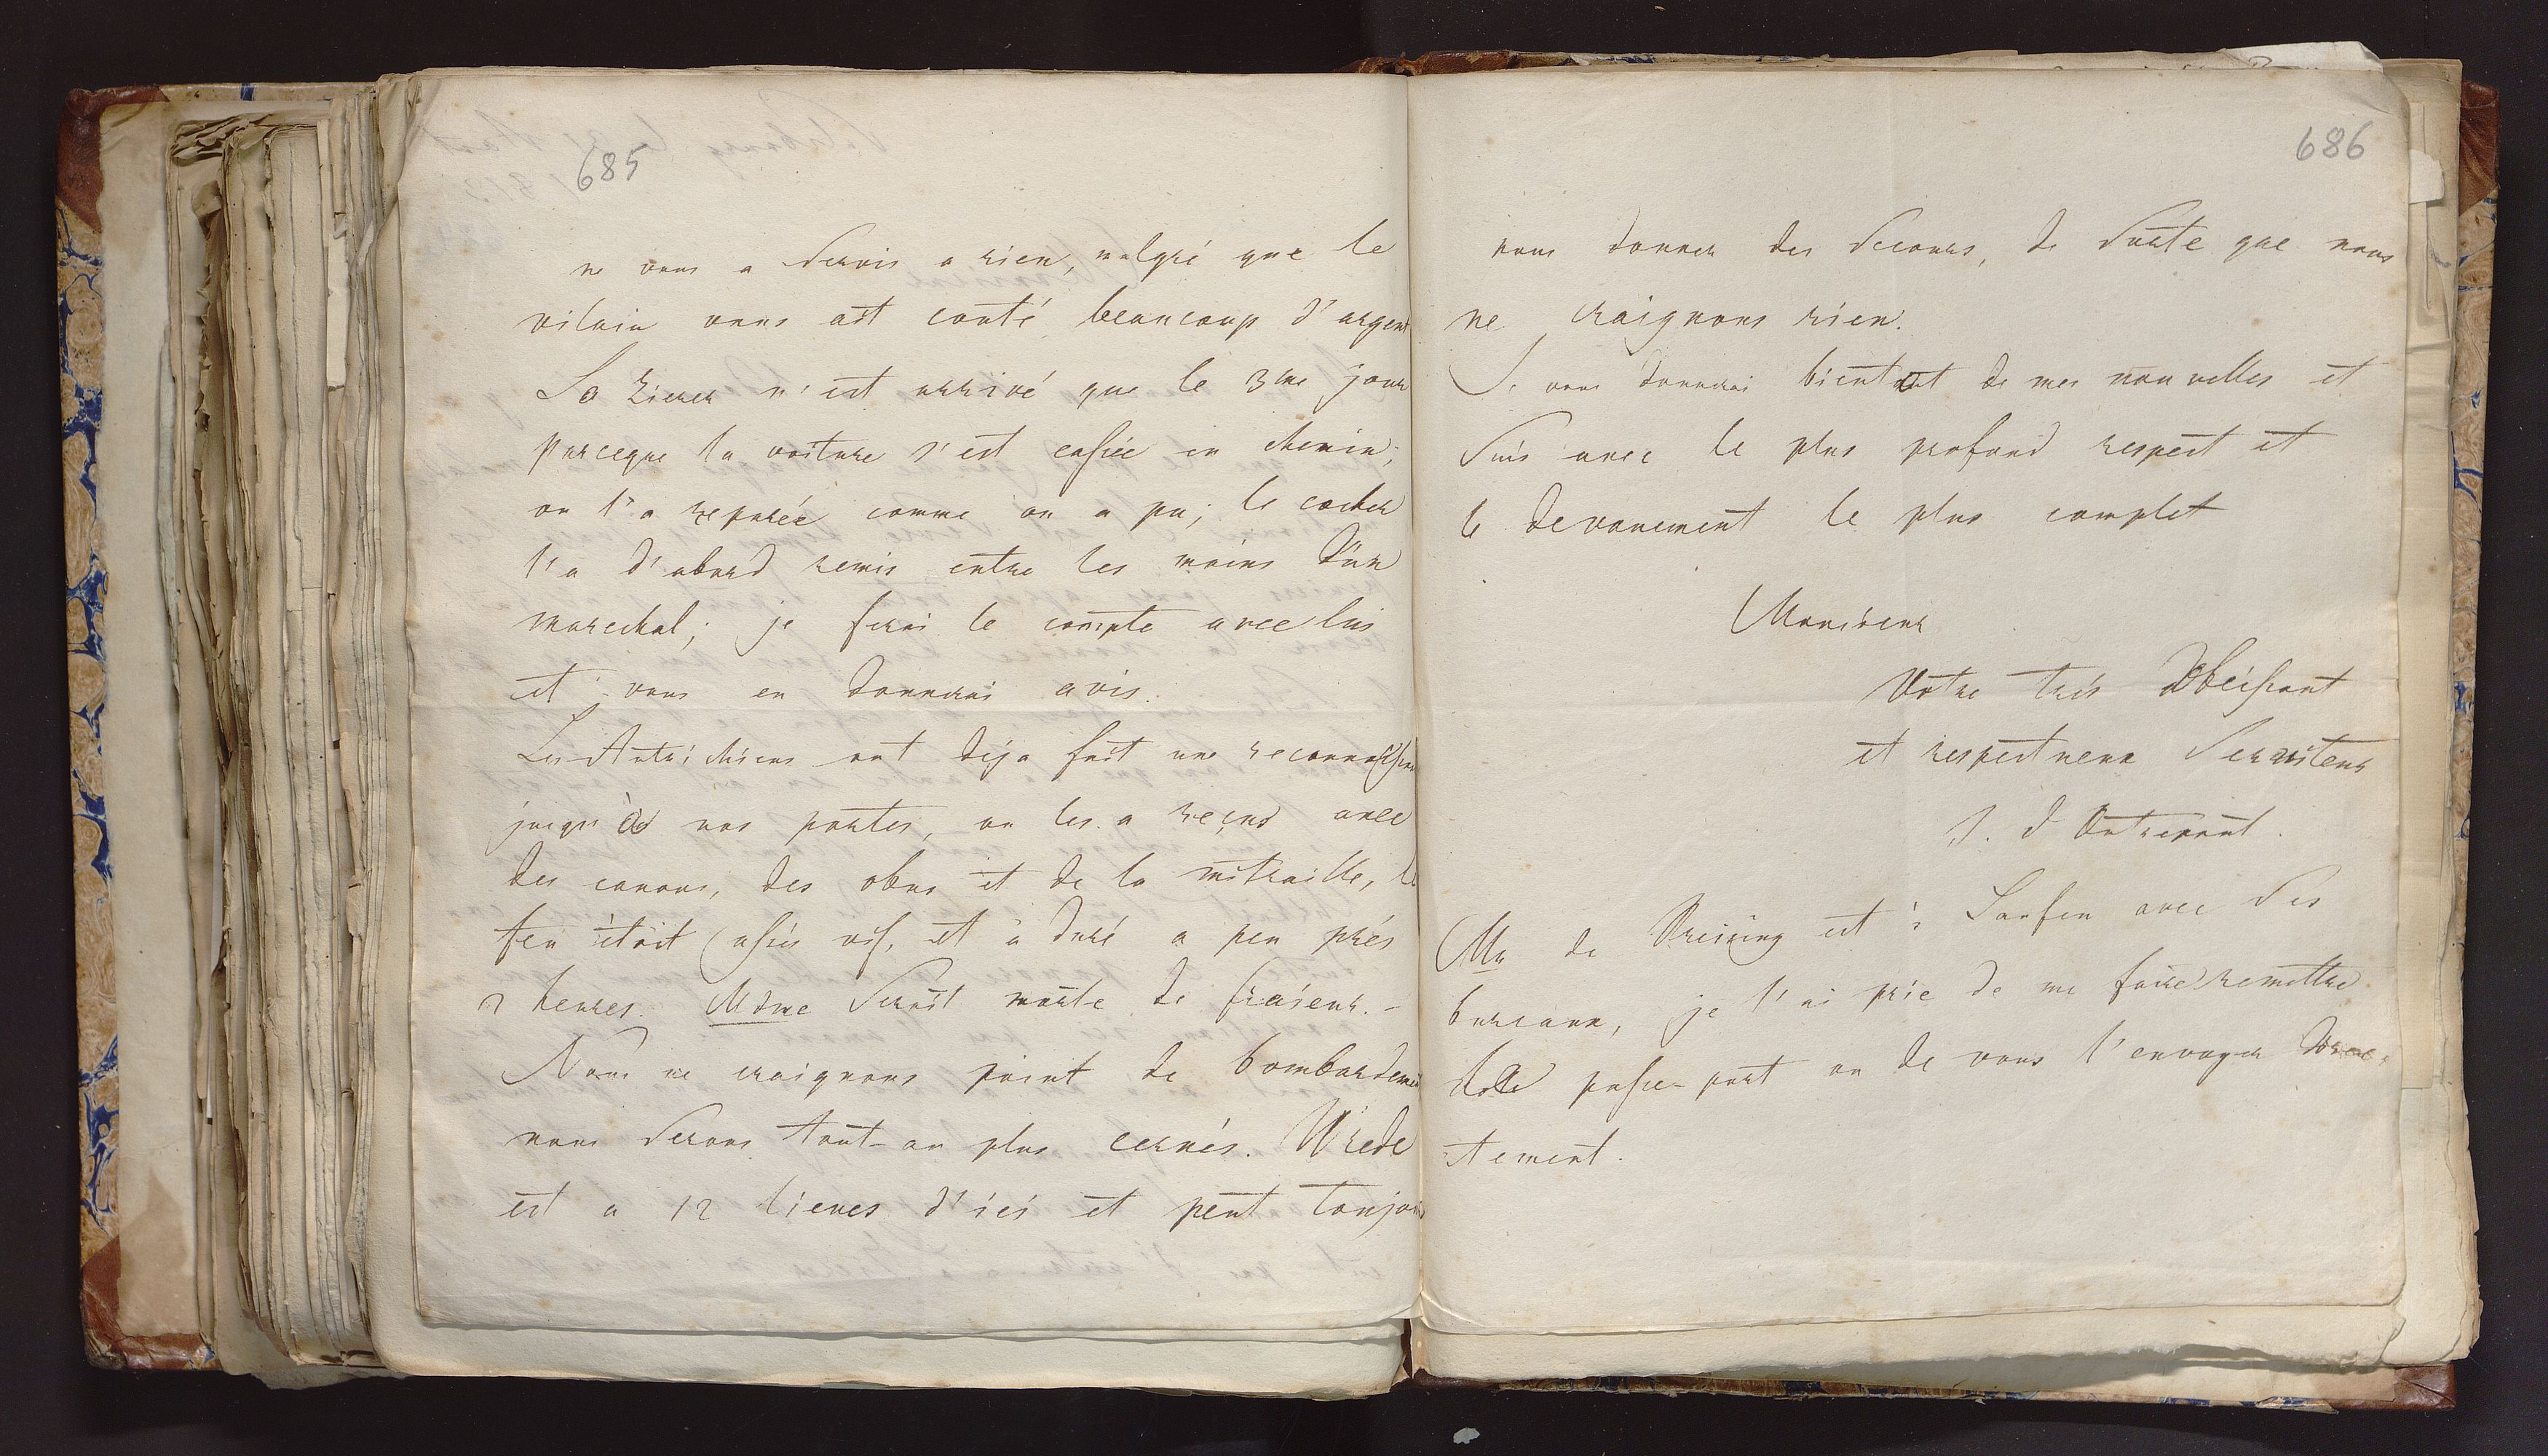 685
ne vous a servis a rien, malgré que le
vilain vous ait couté beaucoup d'argent
n'est arrivé que le 3me jour
parceque la voiture s'est cassée en chemin;
on l'a reparée comme on a pu; le cocher
l'a d'abord remis entre les mains d'un
marechal; je ferai le compte avec lui
et vous en donnerai avis.
Les Autrichiens ont déja fait une
jusqu'à nos portes, on les a reçus avec
des canons, des obus et de la mitraille, le
feu étoit assés vif, et a duré a peu prés
2 heures. Mdme seroit morte de fraieur. -
Nous ne craignons point de bombardement
nous serons tout-au plus cernés. Wrede
est a 12 lieues d'ici et peut toujours
686
nous donner des secours, de sorte que nous
ne craignons rien.
Je vous donnerai bientot de mes nouvelles et
suis avec le plus profond respect et
le devouement le plus complet
Monsieur
Votre trés obéissant
et respectueux serviteur
Mr de est à Laufen avec ses
bureaux, je l'ai prie de me faire remettre
passe-port ou de vous l'envoyer direc-
tement.